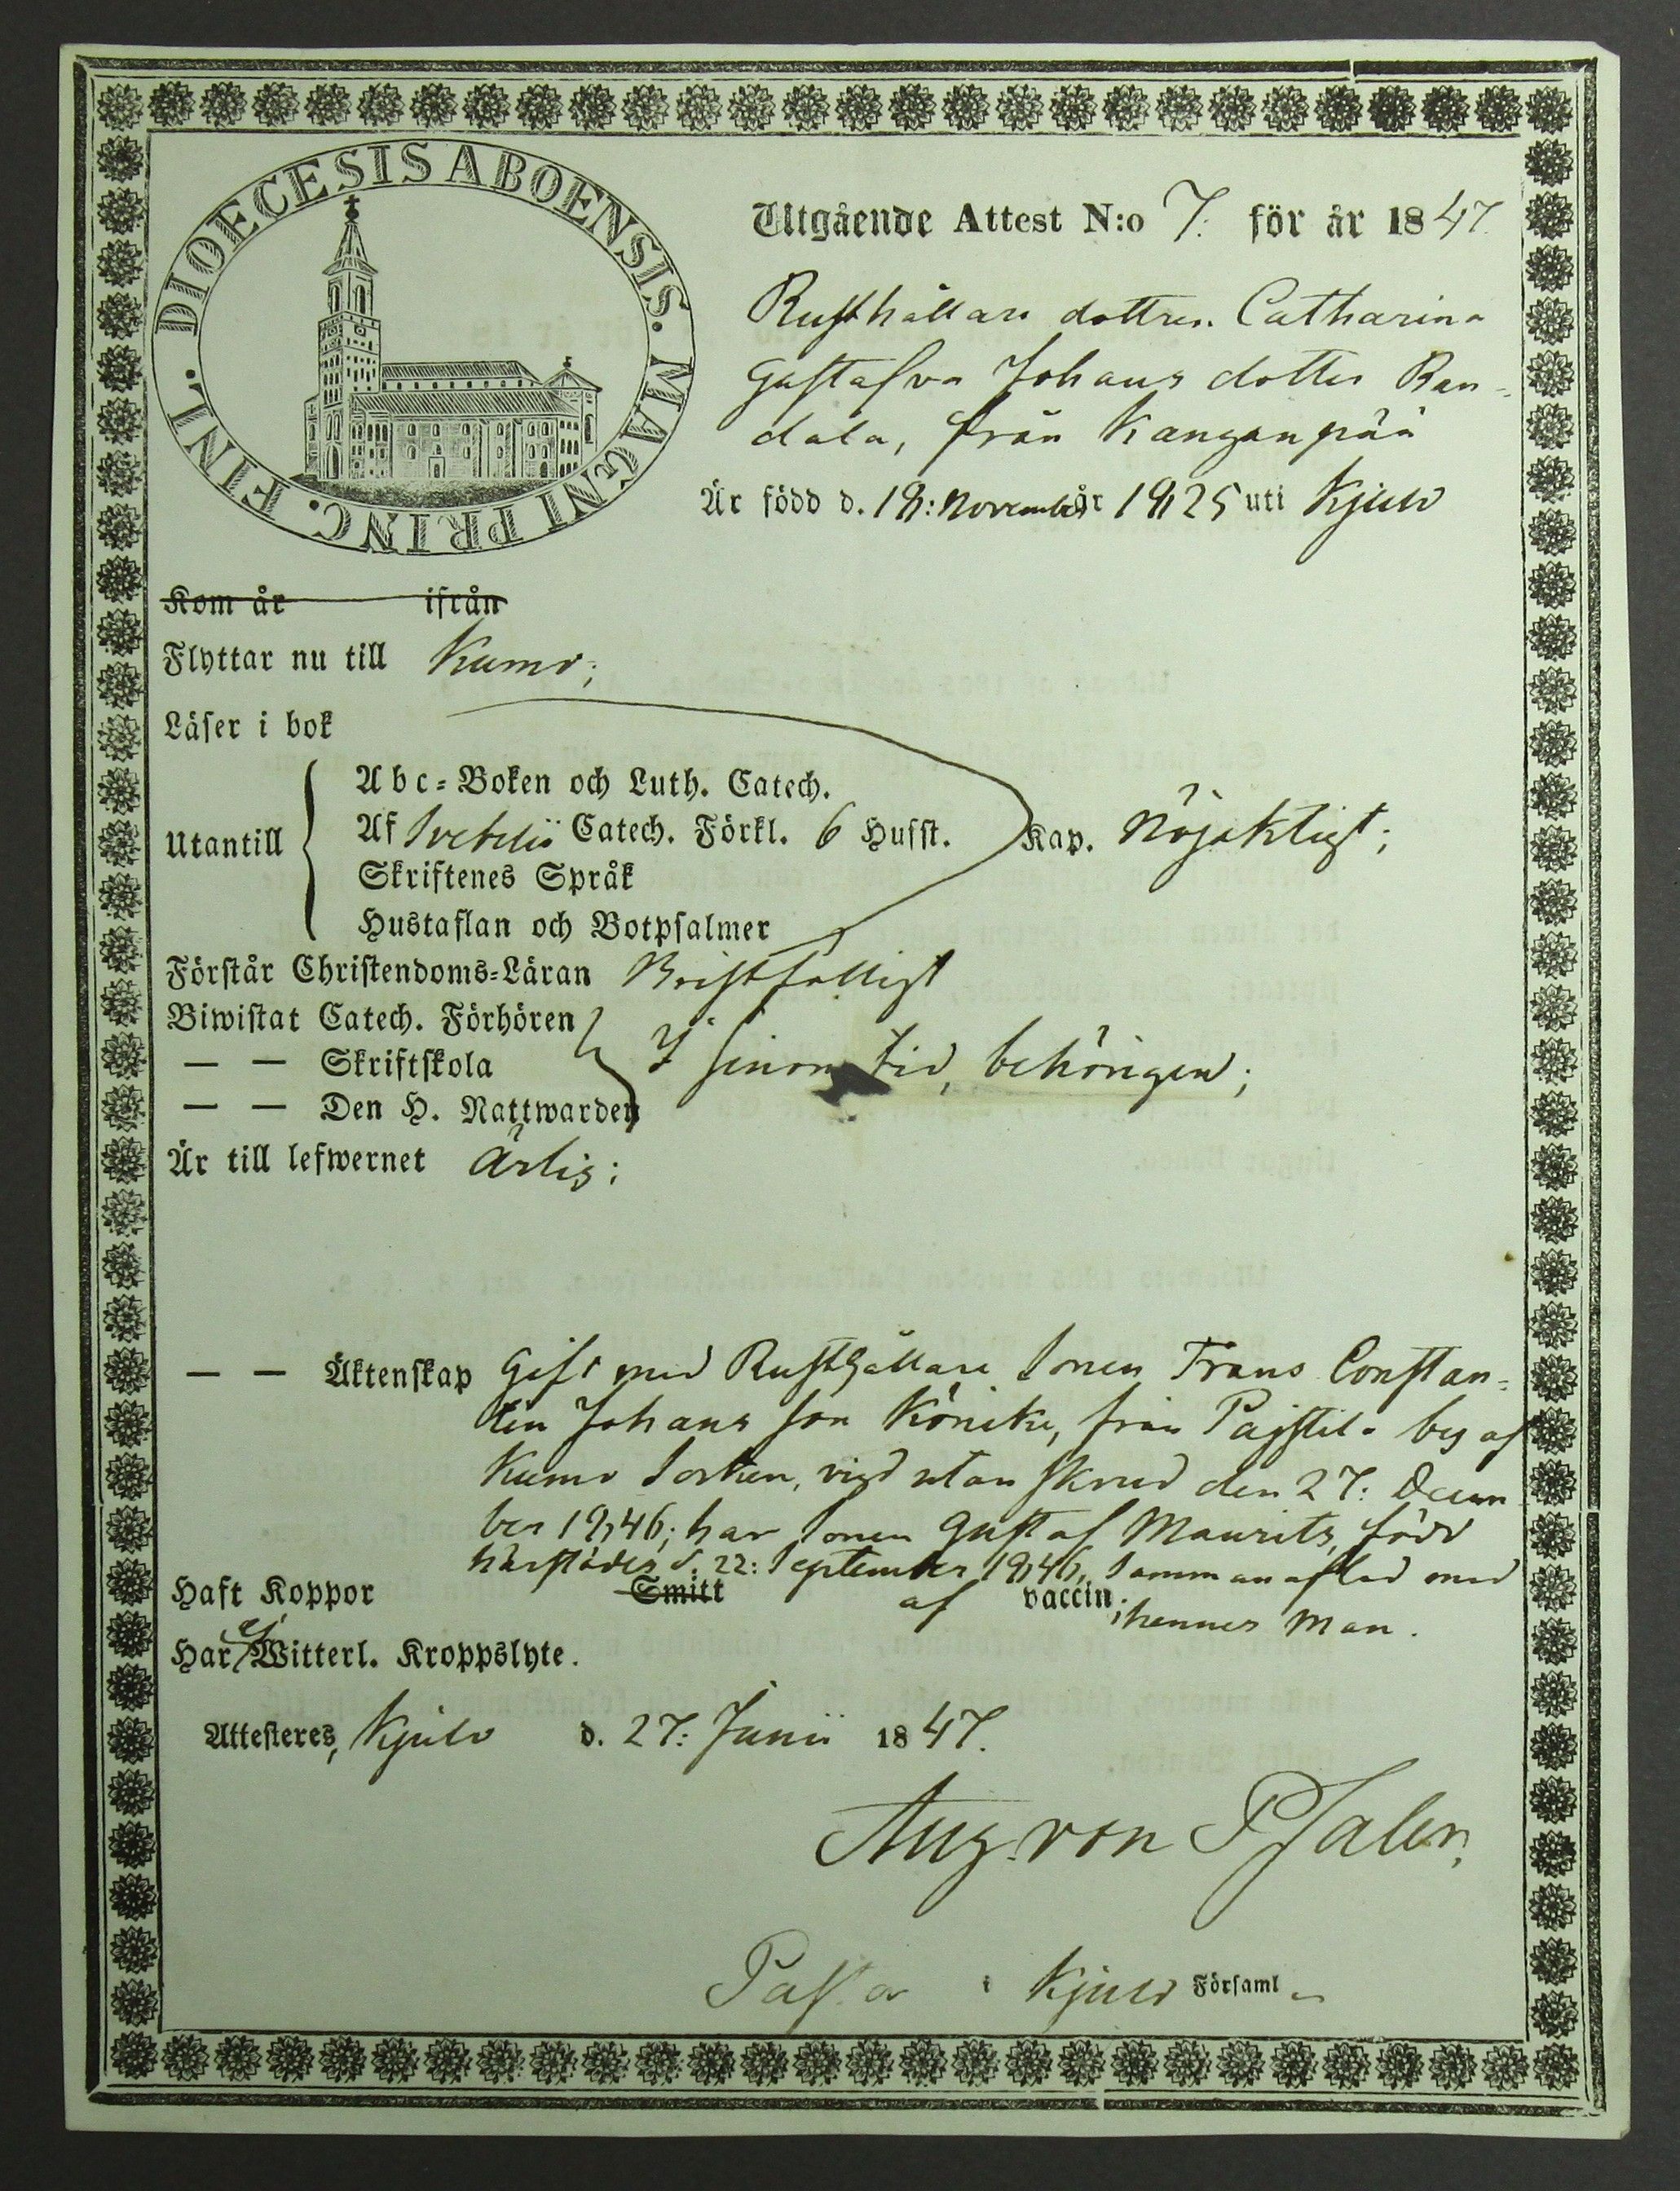 DIOECESIS ABOENSIS. MAGNI PRINC. FINL.
Utgående Attest N:o 7. för år 1847.
Rusthållare dottren Catharina
Gustafva Johans dotter Ran-
dala, från Kanganpää
Är född d. 18: November år 1825 uti Kjulo
Kom år ifrån
Flyttar nu till Kumo;
Läser i bok
Utantill
Abc-Boken och Luth. Catech.
Af Svebelii Catech. Förkl. 6 Hufst. Kap. Nöjaktigt;
Skriftenes Språk
Hustaflan och Botpsalmer
Förstår Christendoms-Läran Bristfälligt
Biwistat Catech. Förhören
— — Skriftskola I sinom tid, behörigen;
— — Den H. Nattwarden
Är till lefwernet ärlig;
— — Äktenskap Gift med Rusthållare Sonen Frans Constan-
tin Johans son Könike, från Pajstila by af
Kumo Socken, vigd utan skrud den 27: Decem
ber 1846; har Sonen Gustaf Maurits, född
härstädes d. 22: September 1846, Sammanaflad med
hennes Man.
Haft Koppor Smitt af vaccin;
Har ej Witterl. Kroppslyte.
Attesteres, Kjulo d. 27: Junii 1847.
Aug. von Pfaler,
Pastor i Kjulo Församl